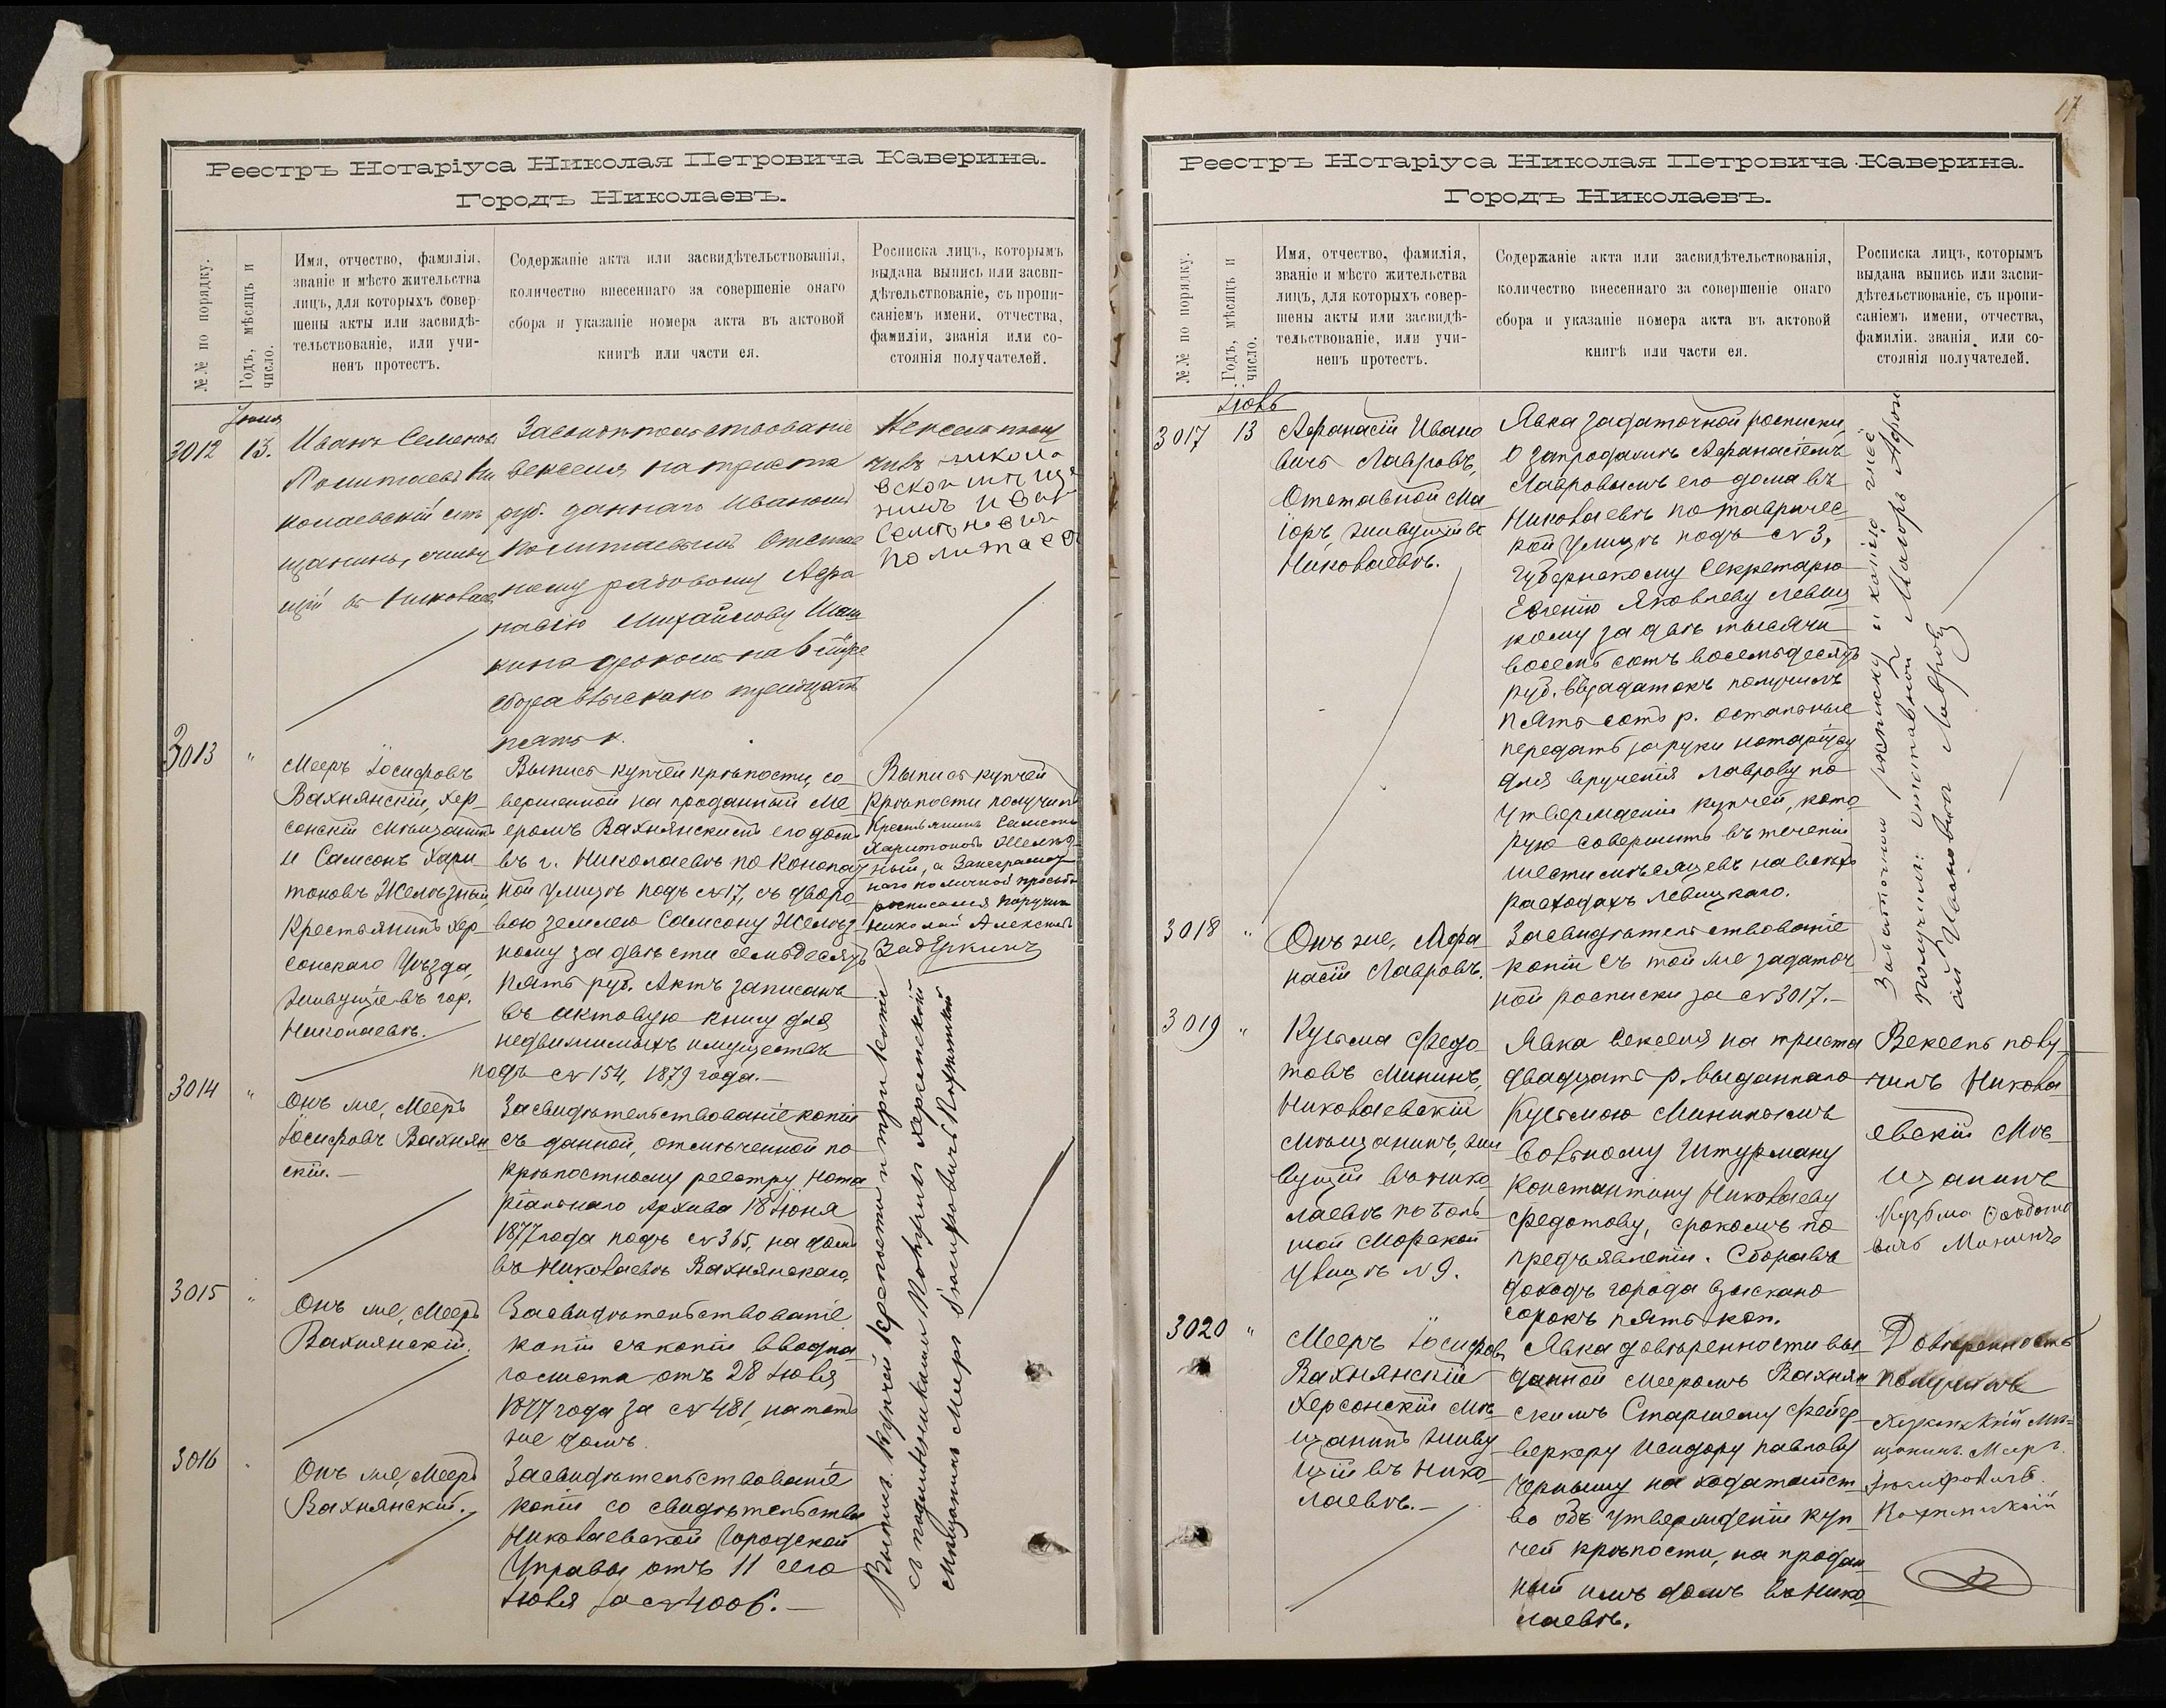 Реестръ Нотаріуса Николая Петровича Каверина.
Городъ Николаевъ.
№№ по порядку.
Годъ, мѣсяцъ и
число.
Имя, отчество, фамилія,
званіе и мѣсто жительства
лицъ, для которыхъ совер-
шены акты или засвидѣ-
тельствованіе, или учи-
ненъ протестъ.
Содержаніе акта или засвидѣтельствованія,
количество внесеннаго за совершеніе онаго
сбора и указаніе номера акта въ актовой
книгѣ или части ея.
Росписка лицъ, которымъ
выдана выпись или засви-
дѣтельствованіе, съ пропи-
саніемъ имени, отчества,
фамиліи, званія или со-
стоянія получателей.
3012
13.
Иванъ Семеновъ
щанинъ, живу
щій въ Николаевѣ
Засвидѣтельствованіе
векселя на триста
руб. даннаго Иваномъ
ному рядовому Афа
насію Михайлову
сбора взыскано тридцать
пять к.
3013
"
Мееръ Іосифовъ
Вахнянскій, Хер-
сонскій Мѣщанинъ
и Самсонъ Хари
тоновъ Желѣзный,
Крестьянинъ Хер-
сонскаго Уѣзда,
живущіе въ гор.
Николаевѣ.
Выпись купчей крѣпости, со-
вершенной на проданный Ме
еромъ Вахнянскимъ его домъ
въ г. Николаевѣ по
ной улицѣ подъ №17, съ дворо
вою землею Самсону Желѣз
ному за двѣсти семьдесятъ
пять руб. Актъ записанъ
въ актовую книгу для
недвижимыхъ имуществъ
подъ №154, 1879 года.-
Выпись купчей
крѣпости получилъ
Крестьянинъ Самсонъ
Харитоновъ Желѣз-
ный, а
наго по личной просьбѣ
росписался
Николай
3014
"
Онъ же, Мееръ
Іосифовъ Вахнян
скій.-
Засвидѣтельствованіе копіи
съ данной, отмѣченной по
крѣпостному реестру Нота
ріальнаго Архива 18 Іюня
1877 года подъ №365, на домъ
въ Николаевѣ Вахнянскаго,
3015
"
Онъ же, Мееръ
Вахнянскій.
Засвидѣтельствованіе
копіи съ копіи вводна
го листа отъ 28 Іюля
1877 года за №481, на тотъ
же домъ.
3016
Онъ же, Мееръ
Вахнянскій.
Засвидѣтельствованіе
копіи со свидѣтельства
Николаевской Городской
Управы отъ 11 сего
Іюля за №4006.-
Выпись купчей крѣпости и три копіи
съ подлинниками получилъ Херсонскій
Мѣщанинъ Мееръ Іосифовичъ Вахнянскій
17
Реестръ Нотаріуса Николая Петровича Каверина.
Городъ Николаевъ.
№№ по порядку.
Годъ, мѣсяцъ и
число.
Имя, отчество, фамилія,
званіе и мѣсто жительства
лицъ, для которыхъ совер-
шены акты или засвидѣ-
тельствованіе, или учи-
ненъ протестъ.
Содержаніе акта или засвидѣтельствованія,
количество внесеннаго за совершеніе онаго
сбора и указаніе номера акта въ актовой
книгѣ или части ея.
Росписка лицъ, которымъ
выдана выпись или засви-
дѣтельствованіе, съ пропи-
саніемъ имени, отчества,
фамиліи, званія или со-
стоянія получателей.
3017
13
Афанасій Ивано
вичъ Лавровъ,
Отставной Ма
іоръ, живущій въ
Николаевѣ.
Явка задаточной росписки,
о запродажѣ Афанасіемъ
Лавровымъ его дома въ
Николаевѣ по Тавричес-
кой улицѣ подъ №3,
Губернскому Секретарю
Евгенію Яковлеву Левиц
кому за двѣ тысячи
восемь сотъ восемьдесятъ
руб. въ задатокъ получилъ
пять сотъ р. остальные
передать въ руки нотаріусу
для врученія Лаврову по
утвержденіи купчей, кото
рую совершить въ теченіи
шести мѣсяцевъ на всѣхъ
расходахъ Левицкаго.
3018
"
Онъ же, Афа
насій Лавровъ.
Засвидѣтельствованіе
копіи съ той же задаточ
ной росписки за №3017.-
Задаточную росписку и копію
получилъ отставной Маіоръ Афан
асій Ивановичъ Лавровъ
3019
"
Кузьма Федо
товъ Мининъ,
Николаевскій
Мѣщанинъ, жи
вущій въ Нико
лаевѣ по Боль
шой Морской
улицѣ №9.
Явка векселя на триста
двадцать р. выданнаго
Кузьмою Мининымъ
Вольному Штурману
Константину Николаеву
Федотову, срокомъ по
предъявленіи. Сбора въ
доходъ города взыскано
сорокъ пять коп.
Вексель полу-
чилъ Никола
евскій Мѣ-
щанинъ
Кузьма Ѳедото
вичъ Мининъ
3020
"
Мееръ Іосифовъ
Вахнянскій
Херсонскій Мѣ-
щанинъ живу
щій въ Нико-
лаевѣ.-
Явка довѣренности вы-
данной Мееромъ Вахнян
скимъ Старшему Фейер-
веркеру Исидору Павлову
Черныш на ходатайст
во объ утвержденіи куп-
чей крѣпости, на продан
ный имъ домъ въ Нико
лаевѣ.
Довѣренность
получилъ
Херсонскій Мѣ-
щанинъ Мееръ
Іосифовичъ
Вахнянскій